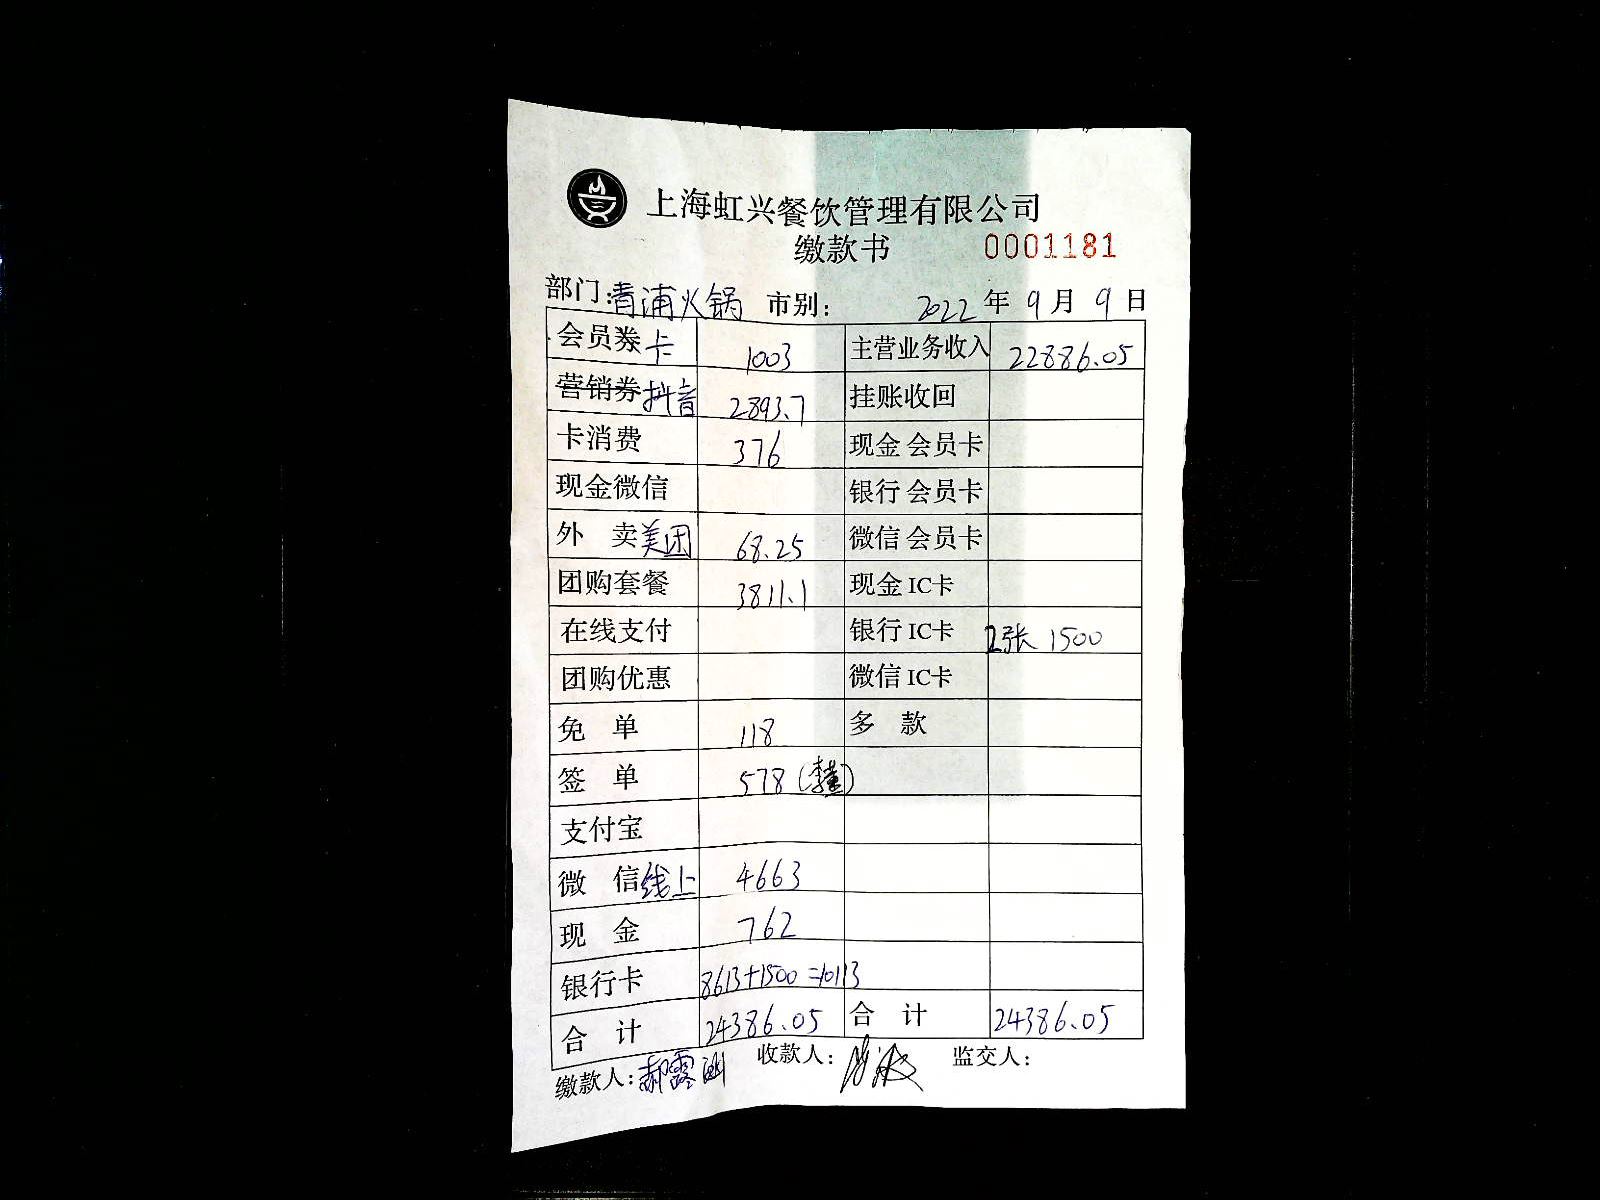 上海虹兴餐饮管理有限公司
缴款书 0001181
部门:青浦火锅 市别: 2022 年 9 月 9 日
会员券卡 1003 主营业务收入 22886.05
营销券抖音 2893.7 挂账收回
卡消费 376 现金 会员卡
现金微信 银行 会员卡
外 卖美团 68.25 微信 会员卡
团购套餐 3811.1 现金 IC卡
在线支付 银行 IC卡 2张 1500
团购优惠 微信 IC卡
免 单 118 多 款
签 单 578 (李董)
支付宝
微 信线上 4663
现 金 762
银行卡 8613+1500=10113
合 计 24386.05 合 计 24386.05
缴款人:郝露 收款人: 监交人: